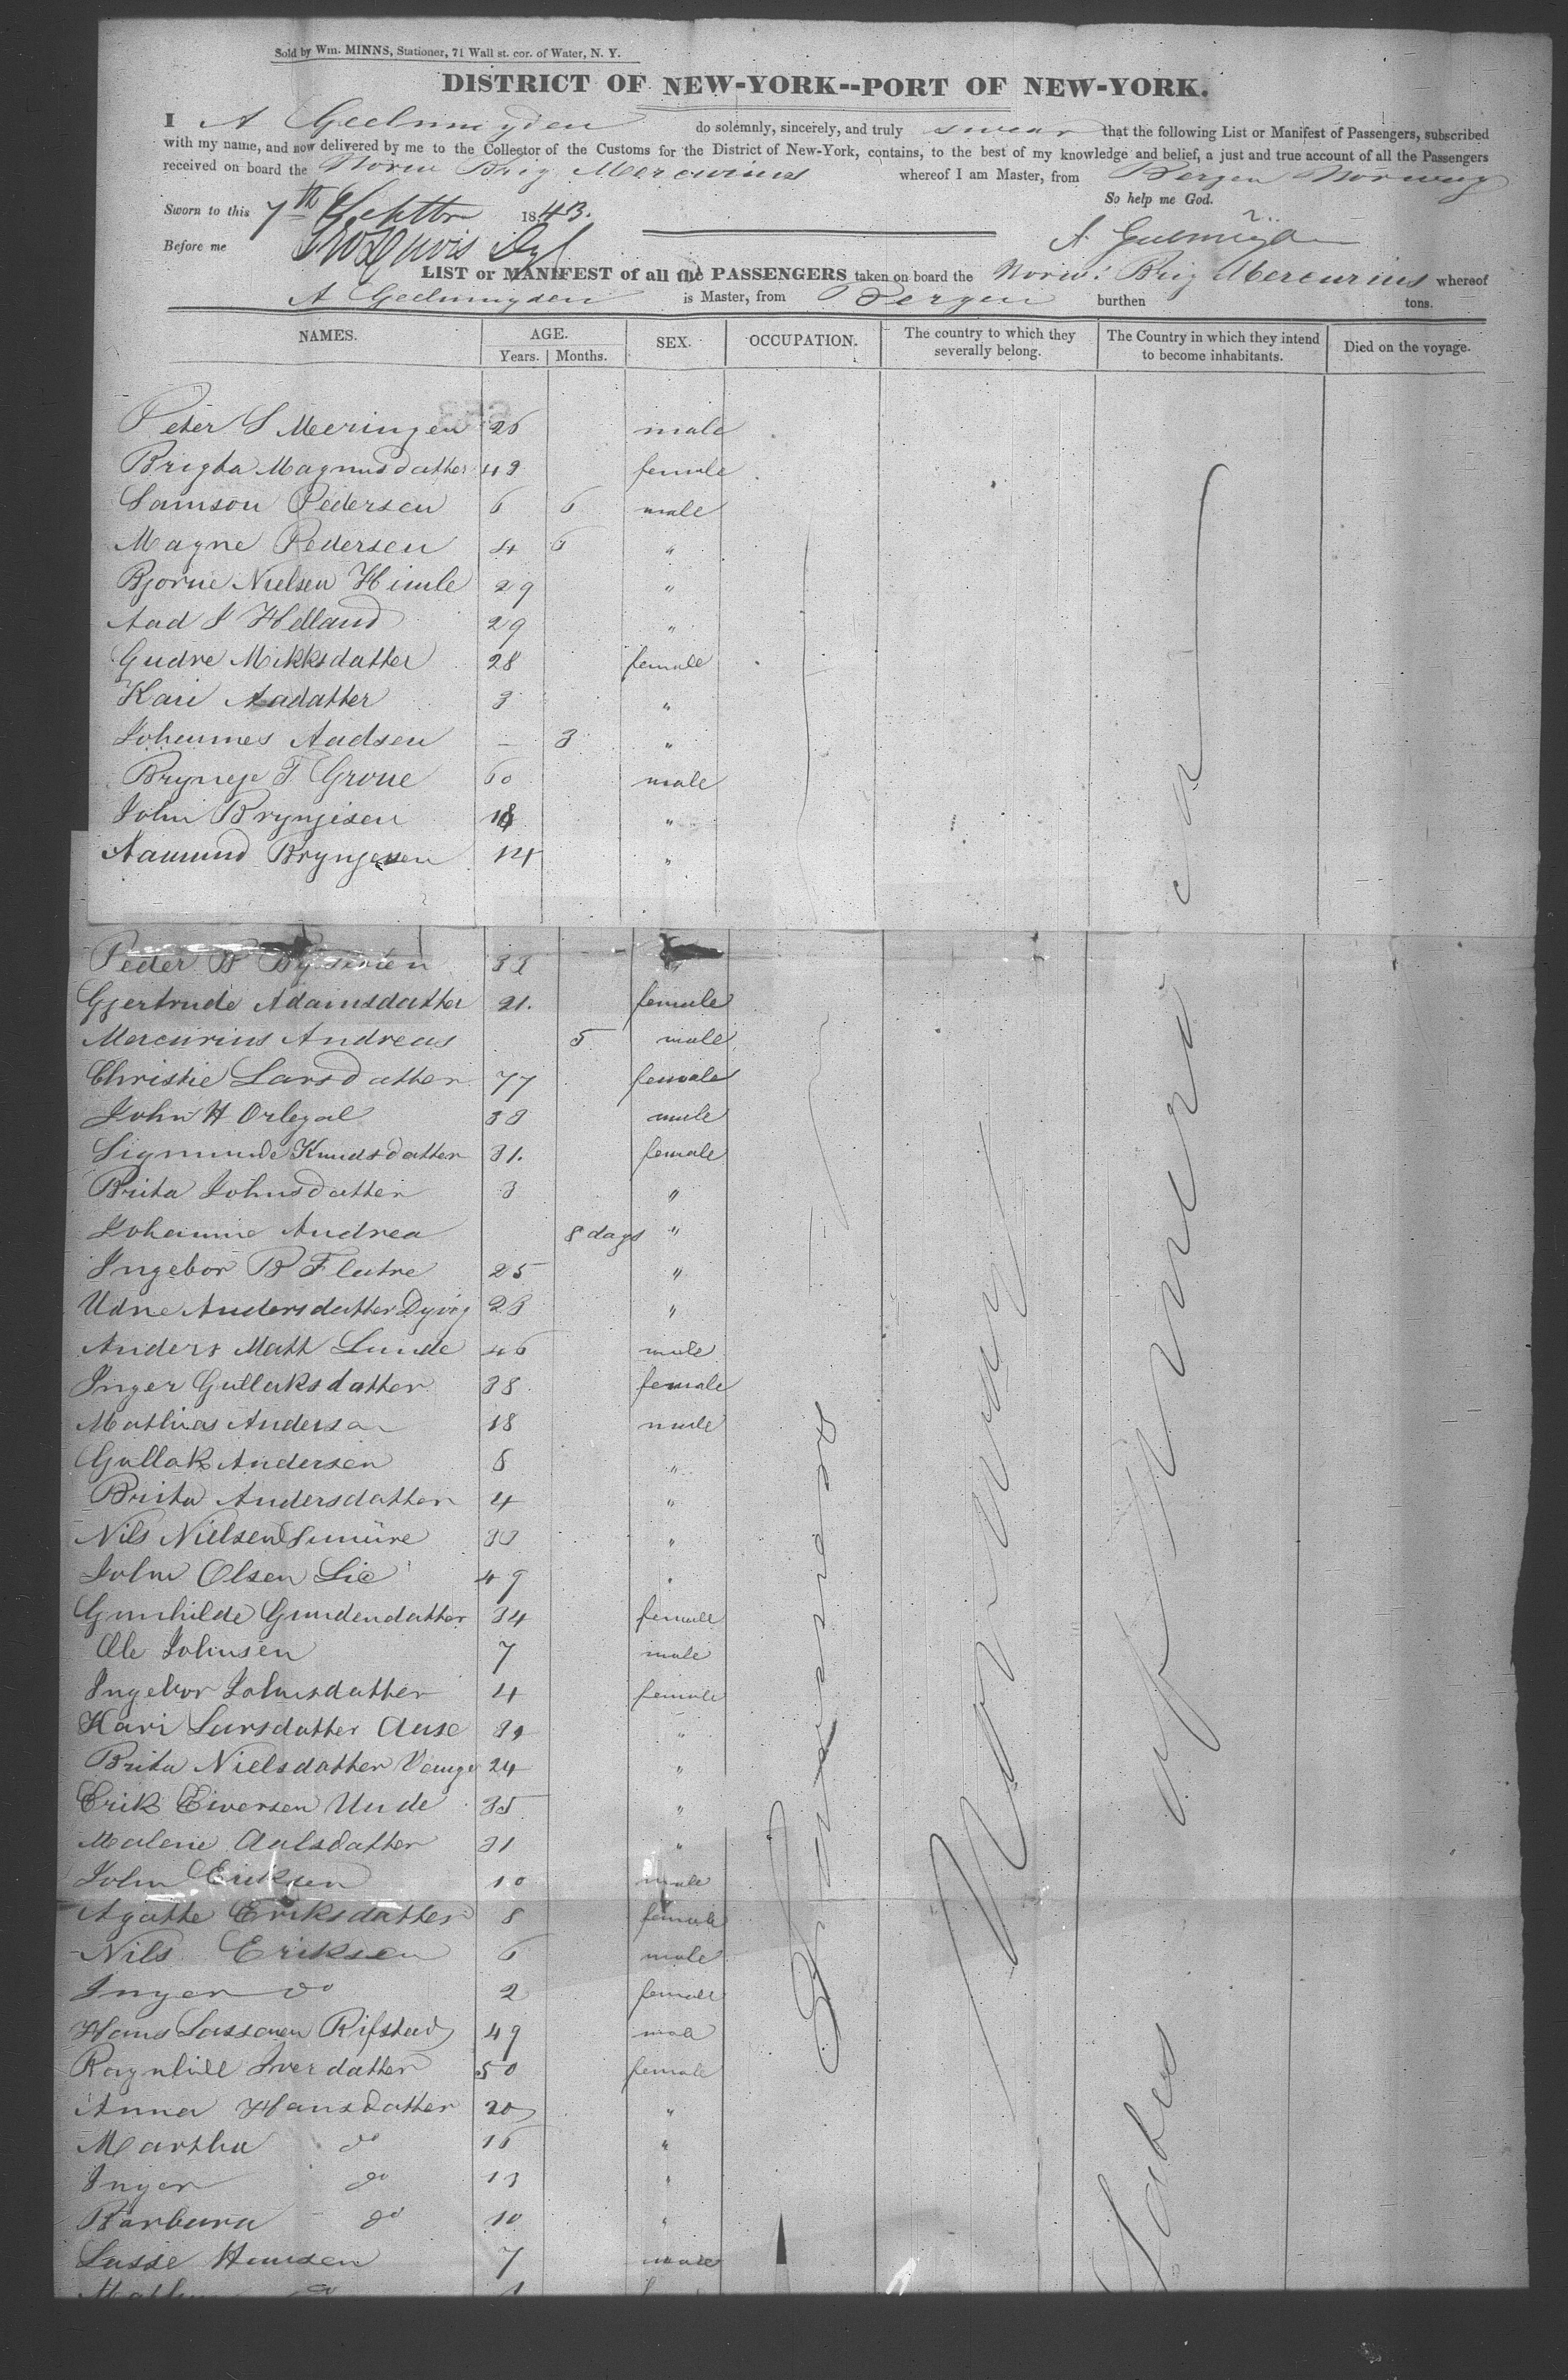 Sold by Wm. MINNS, Stationer, 71 Wall st. cor. of Water, N. Y.
DISTRICT OF NEW-YORK--PORT OF NEW-YORK.
I A Geelmuyden do solemnly, sincerely, and truly swear that the following List or Manifest of Passengers, subscribed
with my name, and now delivered by me to the Collector of the Customs for the District of New-York, contains, to the best of my knowledge and belief, a just and true account of all the Passengers
received on board the Norw Brig Mercurius whereof I am Master, from Bergen Norway
So help me God.
Sworn to this 7th Septbr 1843.
Before me
A Geelmuyden
LIST or MANIFEST of all the PASSENGERS taken on board the Norw: Brig Mercurius whereof
A Geelmuyden is Master, from Bergen burthen tons.
NAMES. AGE. SEX. OCCUPATION. The country to which they severally belong. The Country in which they intend to become inhabitants. Died on the voyage.
Years. Months.
Peter S Meeringen 26 male
Brigta Magnusdatter 49 female
Samson Pedersen 6 6 male
Magne Pedersen 4 6 "
Bjorne Nielsen Himle 29 "
Aad J Helland 29 "
Gudve Mikksdatter 28 female
Kari Aadatter 3 "
Johannes Aadsen – 3 "
Brynege T Grove 60 male
John Bryngisen 18 "
Aamund Bryngesen 14 "
Peder B 33 "
Gjertrude Adamsdatter 21. female
Mercurius Andreas 5 male
Christie Larsdatter 77 female
John H Orlegal 33 male
Sigmunde Knudsdatter 31. female
Brita Johnsdatter 3 "
Johanne Andrea 8 days "
Ingebor B Flatre 25 "
Udne Andersdatter Dyvig 23 "
Anders Math Lunde 46 male
Inger Gullaksdatter 38 female
Mathias Andersan 18 male
Gullak Andersen 8 "
Brita Andersdatter 4 "
Nils Nielsen 33 "
John Olsen Lie 49 "
Gunhilde Gundendatter 34 female
Ole Johnsen 7 male
Ingebor Johnsdatter 4 female
Kari Larsdatter Ause "
Brita Nielsdatter Venge 24 "
Erik Eiversen Unde 35 "
Malene Aalsdatter 31 "
John Eriksen 10 male
Agathe Eriksdatter 8 female
Nils Eriksen 6 male
Inger do 2 female
Hans Lassesen Rifstad 49 male
Raynhill Iverdatter 50 female
Anna Hansdatter 20 "
Martha do 16 "
Inger do 13 "
Barbara do 10 "
Lasse Hansen 7 male
Farmers
Norway
United States of America